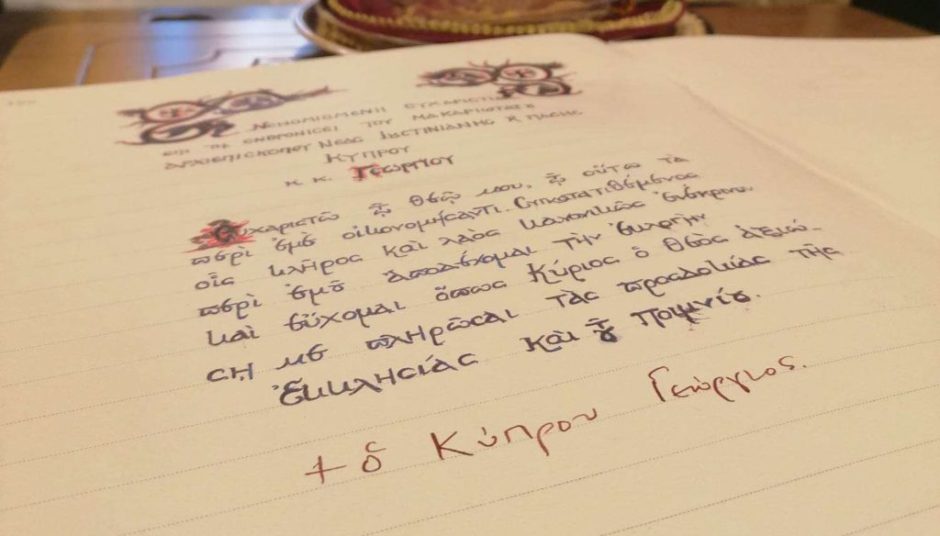 ΝΕΝΟΜΙΣΜΕΝΗ ΕΥΧΑΡΙΣΤΙΑ
ΕΠΙ ΤΗ ΕΝΘΡΟΝΙΣΕΙ ΤΟΥ ΜΑΚΑΡΙΩΤΑΤΟΥ
ΑΡΧΙΕΠΙΣΚΟΠΟΥ ΝΕΑΣ ΙΟΥΣΤΙΝΙΑΝΗΣ ΠΑΣΗΣ
ΚΥΠΡΟΥ
Κ.Κ. Γεωργίου
Εὐχαριστῶ τῷ Θεῷ μου, τῷ οὕτω τὰ
περὶ ἐμὲ οἰκονομήσαντι. Συγκατατιθέμενος
οἷς κλῆρος καὶ λαὸς κανονικῶς
περὶ ἐμοῦ ἀποδέχομαι τὴν ἐκλογὴν
καὶ εὔχομαι ὅπως Κύριος ὁ Θεὸς ἀξιώ-
σῃ με πληρῶσαι τὰς προσδοκίας τῆς
Ἐκκλησίας καὶ τοῦ ποιμνίου.
+ ὁ Κύπρου Γεώργιος.